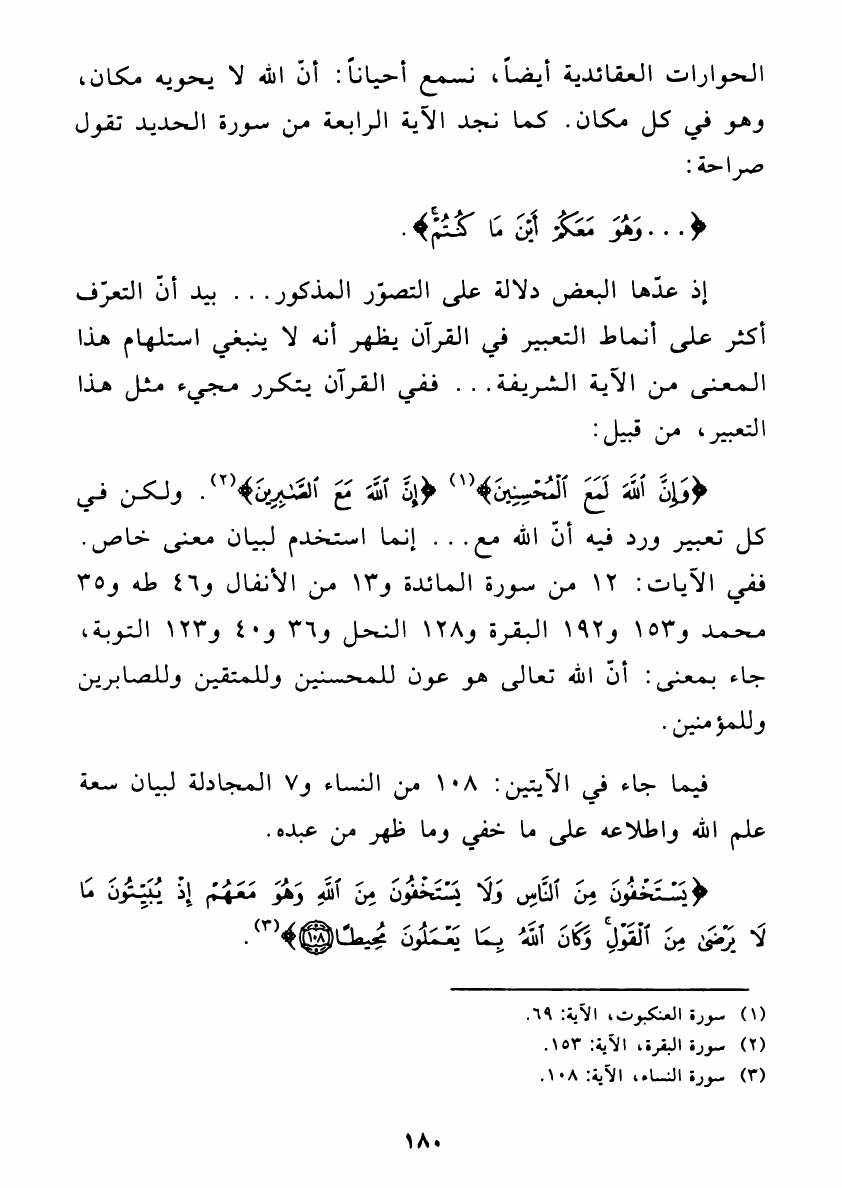 الحوارات العقائدية أيضاً، نسمع أحياناً: أنّ الله لا يحويه مكان،
وهو في كل مكان. كما نجد الآية الرابعة من سورة الحديد تقول
صراحة:
﴿...وَهُوَ مَعَكُمْ أَيْنَ مَا كُنتُمْ ۚ﴾.
إذ عدّها البعض دلالة على التصوّر المذكور... بيد أنّ التعرّف
أكثر على أنماط التعبير في القرآن يظهر أنه لا ينبغي استلهام هذا
المعنى من الآية الشريفة... ففي القرآن يتكرر مجيء مثل هذا
التعبير، من قبيل:
﴿وَإِنَّ ٱللَّهَ لَمَعَ ٱلْمُحْسِنِينَ﴾(١) ﴿إِنَّ ٱللَّهَ مَعَ ٱلصَّٰبِرِينَ﴾(٢). ولكن في
كل تعبير ورد فيه أنّ الله مع... إنما استخدم لبيان معنى خاص.
ففي الآيات: ١٢ من سورة المائدة و١٣ من الأنفال و٤٦ طه و٣٥
محمد و١٥٣ و١٩٢ البقرة و١٢٨ النحل و٣٦ و٤٠ و١٢٣ التوبة،
جاء بمعنى: أنّ الله تعالى هو عون للمحسنين وللمتقين وللصابرين
وللمؤمنين.
فيما جاء في الآيتين: ١٠٨ من النساء و٧ المجادلة لبيان سعة
علم الله واطلاعه على ما خفي وما ظهر من عبده.
﴿يَسْتَخْفُونَ مِنَ ٱلنَّاسِ وَلَا يَسْتَخْفُونَ مِنَ ٱللَّهِ وَهُوَ مَعَهُمْ إِذْ يُبَيِّتُونَ مَا
لَا يَرْضَىٰ مِنَ ٱلْقَوْلِ ۚ وَكَانَ ٱللَّهُ بِمَا يَعْمَلُونَ مُحِيطًا ۝١٠٨﴾(٣).
(١) سورة العنكبوت، الآية: ٦٩.
(٢) سورة البقرة، الآية: ١٥٣.
(٣) سورة النساء، الآية: ١٠٨.
١٨٠